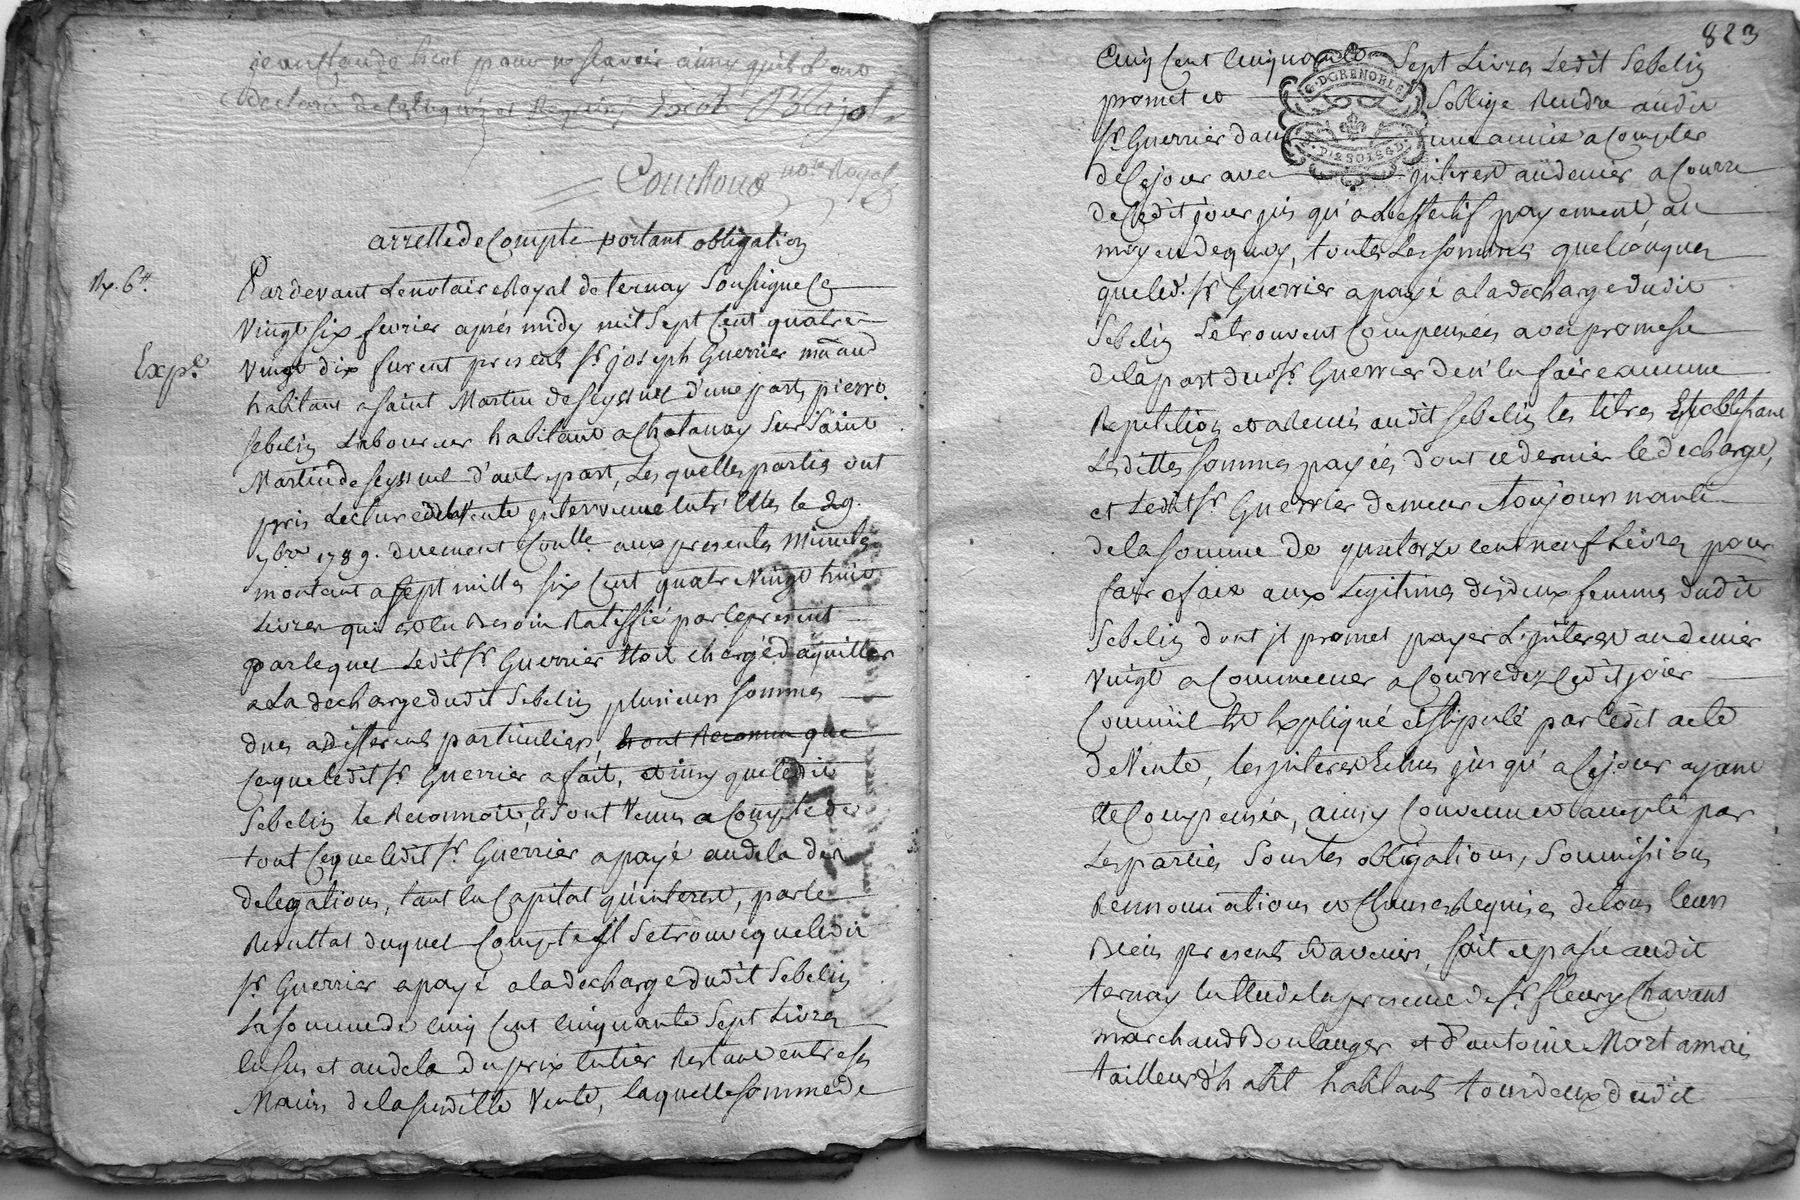 jean Claude hiest pour ne scavoir ainsy quil l'ont
declaré de ce Enquis et Requis
Couchoud no.re Royal
arretté de Compte portant obligation
R. 6 ₶
Exp.é
Pardevant Le notaire Royal de ternay Soussigné Ce
Vingt Six fevrier aprés midy mil Sept Cent quatre
Vingt dix furent presents Sr. joseph Guerrier md and
habitant a Saint Martin de Seyssuel d'une part, pierre
Sebelin Laboureur habitant a Chatanay Sur Saint
Martin de Seyssuel d'autre part, Lesquelles parties ont
pris Lecture de la Vente intervenue entr'Elles le 29.
7bre 1789. duement Conllé. aux presentes Minutes
montant a Sept milles Six Cent quatre Vingt huit
Livres qui est au Besoin Ratiffié par le present
par lequel Ledit Sr. Guerrier Etoit chargé d'aquitter
a La decharge dudit Sebelin plusieurs Sommes
dues a differents particuliers, et ont Reconnu que
Ce que ledit Sr. Guerrier a fait, et ainsy que ledit
Sebelin le Reconnoit, Et Sont Venus a Compte de
tout Ce que ledit Sr. Guerrier a payé audela des
delegations, tant en Capital qu'interest, par le
Resultat duquel Compte Il Se trouve que ledit
Sr. Guerrier a payé a la decharge dudit Sebelin
La Somme de Cinq Cent Cinquante Sept Livres
en Sus et audela du prix Entier Restant entre Ses
Mains de la Susditte Vente, laquelle Somme de
823
Cinq Cent Cinquante Sept Livres Ledit Sebelin
G. D GRENOBLE
promet et S'oblige Rendre audit
Sr. Guerrier dans une année a Compter
de Ce jour avec interest au denier a Courre
de Cedit jour jus qu'a L'effectif payement, au
moyen de quoy, toutes Les Sommes quelconques
que led. Sr. Guerrier a payé a la decharge dudit
Sebelin Se trouvent Compensées avec promesse
de la part dud. Sr. Guerrier de n'en faire aucune
Repetition et a Remis audit Sebelin les titres Establissant
Lesdittes Sommes payées dont ce dernier le decharge,
et Ledit Sr. Guerrier demeure toujours nanti
de la Somme de quatorze cent neuf Livres pour
faire face aux Legitimes des deux femmes dudit
Sebelin dont il promet payer L'interest au denier
Vingt a Commencer a Courre dez Cedit jour
Comm'il Est Expliqué et Stipulé par Ledit acte
de Vente, les interest Echus jus qu'a Ce jour ayant
Eté Compensés, ainsy Convenu et accepté par
Les parties Sous les obligations, Soumissions
Rennonciations et Clauses Requises de tous leurs
Biens presents Et avenirs, fait et passé audit
ternay en l'Etude en presence de Sr. fleury Chavant
marchand Boulanger et d'antoine Mortamais
tailleur d'habit habitants tous deux dudit